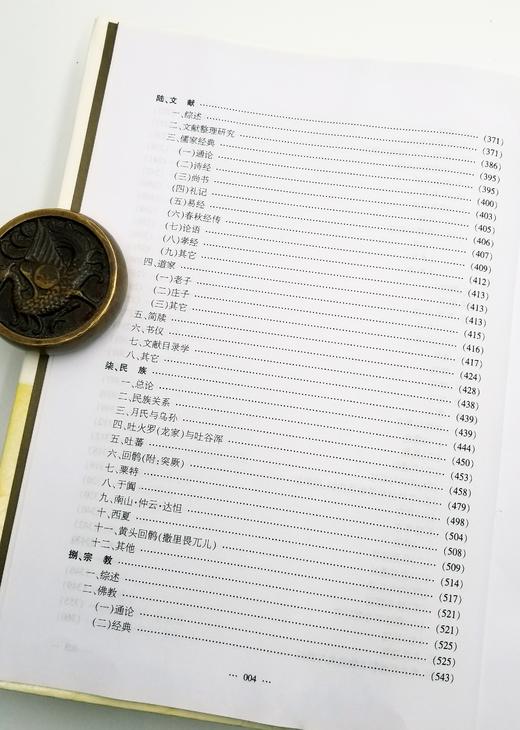 陆、文 献 (371)
一、综述 (371)
二、文献整理研究 (386)
三、儒家经典 (395)
(一)通论 (395)
(二)诗经 (400)
(三)尚书 (403)
(四)礼记 (405)
(五)易经 (406)
(六)春秋经传 (407)
(七)论语 (409)
(八)孝经 (412)
(九)其它 (413)
四、道家 (413)
(一)老子 (413)
(二)庄子 (415)
(三)其它 (416)
五、简牍 (417)
六、书仪 (424)
七、文献目录学 (428)
八、其它 (438)
柒、民 族 (439)
一、总论 (439)
二、民族关系 (444)
三、月氏与乌孙 (450)
四、吐火罗(龙家)与吐谷浑 (453)
五、吐蕃 (458)
六、回鹘(附:突厥) (479)
七、粟特 (498)
八、于阗 (504)
九、南山·仲云·达怛 (508)
十、西夏 (509)
十一、黄头回鹘(撒里畏兀儿) (514)
十二、其他 (517)
捌、宗 教 (521)
一、综述 (521)
二、佛教 (525)
(一)通论 (525)
(二)经典 (543)
··· 004 ···